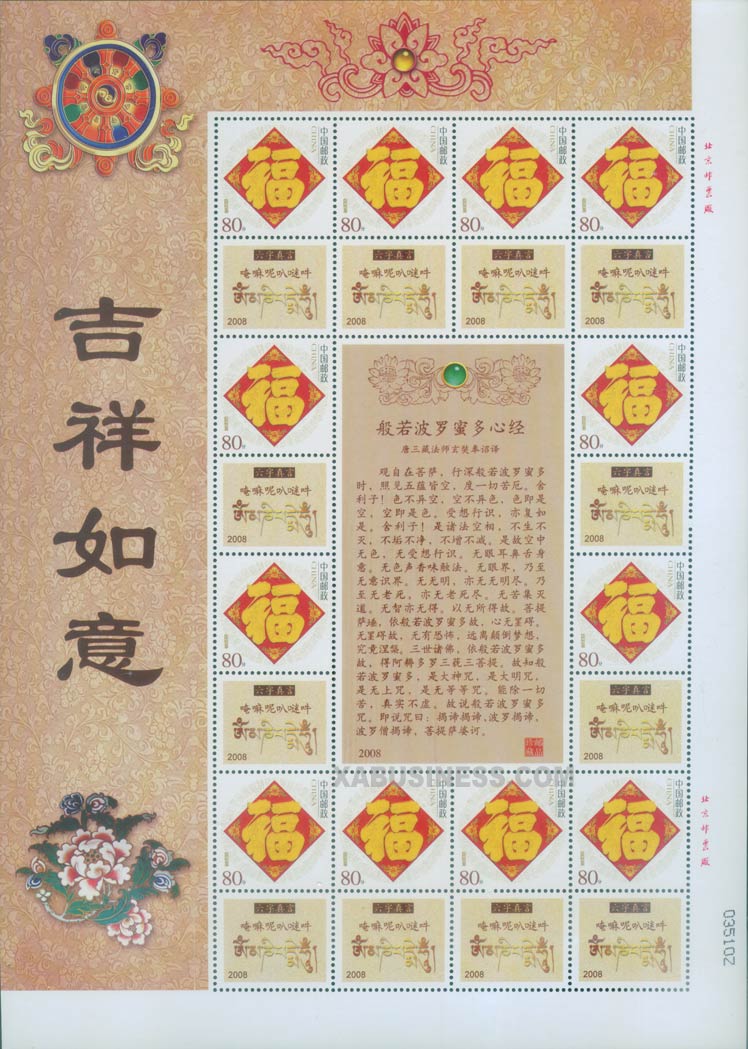 吉祥如意
福 中国邮政 CHINA 80分
福 中国邮政 CHINA 80分
福 中国邮政 CHINA 80分
福 中国邮政 CHINA 80分
北京邮票厂
六字真言
唵嘛呢叭吽
ཨོཾ་མ་ཎི་པདྨེ་ཧཱུྃ
2008
六字真言
唵嘛呢叭吽
ཨོཾ་མ་ཎི་པདྨེ་ཧཱུྃ
2008
六字真言
唵嘛呢叭吽
ཨོཾ་མ་ཎི་པདྨེ་ཧཱུྃ
2008
六字真言
唵嘛呢叭吽
ཨོཾ་མ་ཎི་པདྨེ་ཧཱུྃ
2008
福 中国邮政 CHINA 80分
六字真言
唵嘛呢叭吽
ཨོཾ་མ་ཎི་པདྨེ་ཧཱུྃ
2008
福 中国邮政 CHINA 80分
六字真言
唵嘛呢叭吽
ཨོཾ་མ་ཎི་པདྨེ་ཧཱུྃ
2008
般若波罗蜜多心经
唐三藏法师玄奘奉诏译
观自在菩萨，行深般若波罗蜜多
时，照见五蕴皆空，度一切苦厄。舍
利子！色不异空，空不异色，色即是
空，空即是色。受想行识，亦复如
是。舍利子！是诸法空相，不生不
灭，不垢不净，不增不减。是故空中
无色，无受想行识。无眼耳鼻舌身
意。无色声香味触法。无眼界，乃至
无意识界。无无明，亦无无明尽。乃
至无老死，亦无老死尽。无苦集灭
道。无智亦无得。以无所得故。菩提
萨埵，依般若波罗蜜多故，心无罣碍。
无罣碍故，无有恐怖，远离颠倒梦想，
究竟涅槃。三世诸佛，依般若波罗蜜多
故，得阿耨多罗三藐三菩提。故知般
若波罗蜜多，是大神咒，是大明咒，
是无上咒，是无等等咒。能除一切
苦，真实不虚。故说般若波罗蜜多
咒。即说咒曰：揭谛揭谛，波罗揭谛，
波罗僧揭谛，菩提萨婆诃。
2008
福 中国邮政 CHINA 80分
六字真言
唵嘛呢叭吽
ཨོཾ་མ་ཎི་པདྨེ་ཧཱུྃ
2008
福 中国邮政 CHINA 80分
六字真言
唵嘛呢叭吽
ཨོཾ་མ་ཎི་པདྨེ་ཧཱུྃ
2008
XABUSINESS.COM
福 中国邮政 CHINA 80分
福 中国邮政 CHINA 80分
福 中国邮政 CHINA 80分
福 中国邮政 CHINA 80分
北京邮票厂
六字真言
唵嘛呢叭吽
ཨོཾ་མ་ཎི་པདྨེ་ཧཱུྃ
2008
六字真言
唵嘛呢叭吽
ཨོཾ་མ་ཎི་པདྨེ་ཧཱུྃ
2008
六字真言
唵嘛呢叭吽
ཨོཾ་མ་ཎི་པདྨེ་ཧཱུྃ
2008
六字真言
唵嘛呢叭吽
ཨོཾ་མ་ཎི་པདྨེ་ཧཱུྃ
2008
035102